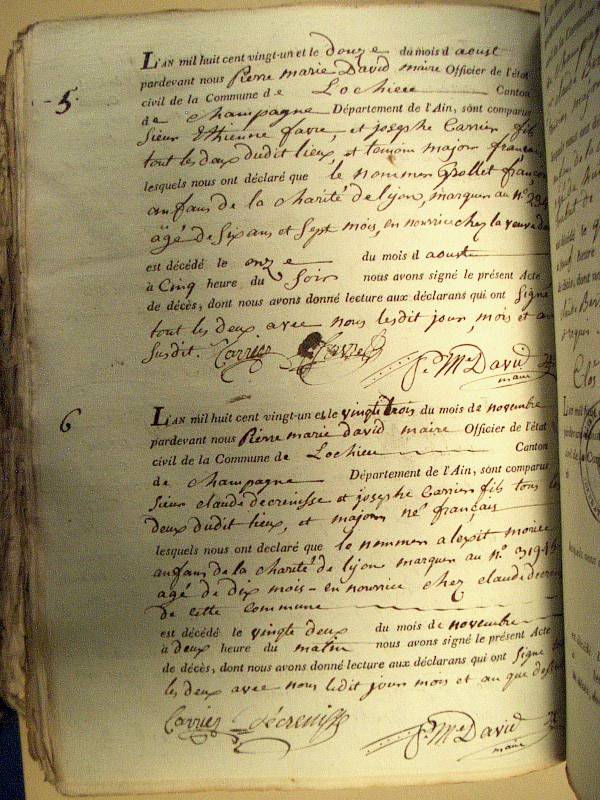 5.
L'AN mil huit cent vingt-un et le douze du mois d aoust
pardevant nous Pierre marie David maire Officier de l'état
civil de la Commune de Lochieu Canton
de Champagne Département de l'Ain, sont comparus
Sieur Ethienne favre, et josephe Carrier fils
tout les deux dudit lieux, et temoin majors francais
lesquels nous ont déclaré que le nommer Grollet françois
anfans de la charité de lyon, marquer au n°
âgé de Six ans et Sept mois, en nourrice chez la veuve
est décédé le onze du mois d aoust
à Cinq heure du Soir nous avons signé le présent Acte
de décès, dont nous avons donné lecture aux déclarans qui ont Signe
tout les deux avec nous lesdit jour, mois et an
Susdit. Carrier favre P. Me David
maire
6
L'AN mil huit cent vingt-un et le vingt trois du mois de novembre
pardevant nous Pierre marie david maire Officier de l'état
civil de la Commune de Lochieu Canton
de Champagne Département de l'Ain, sont comparus
Sieur claude decrenisse et josephe Carrier fils tous les
deux dudit lieux, et majors né français
lesquels nous ont déclaré que le nommer alexit
anfans de la charité de lyon marquer au n°
agé de dix mois - en nourrice chez claude
de cette commune
est décédé le vingt deux du mois de novembre
à deux heure du matin nous avons signé le présent Acte
de décès, dont nous avons donné lecture aux déclarans qui ont Signe
les deux avec nous ledit jours mois et an que dessus
Carrier décrenisse P. Me David
maire